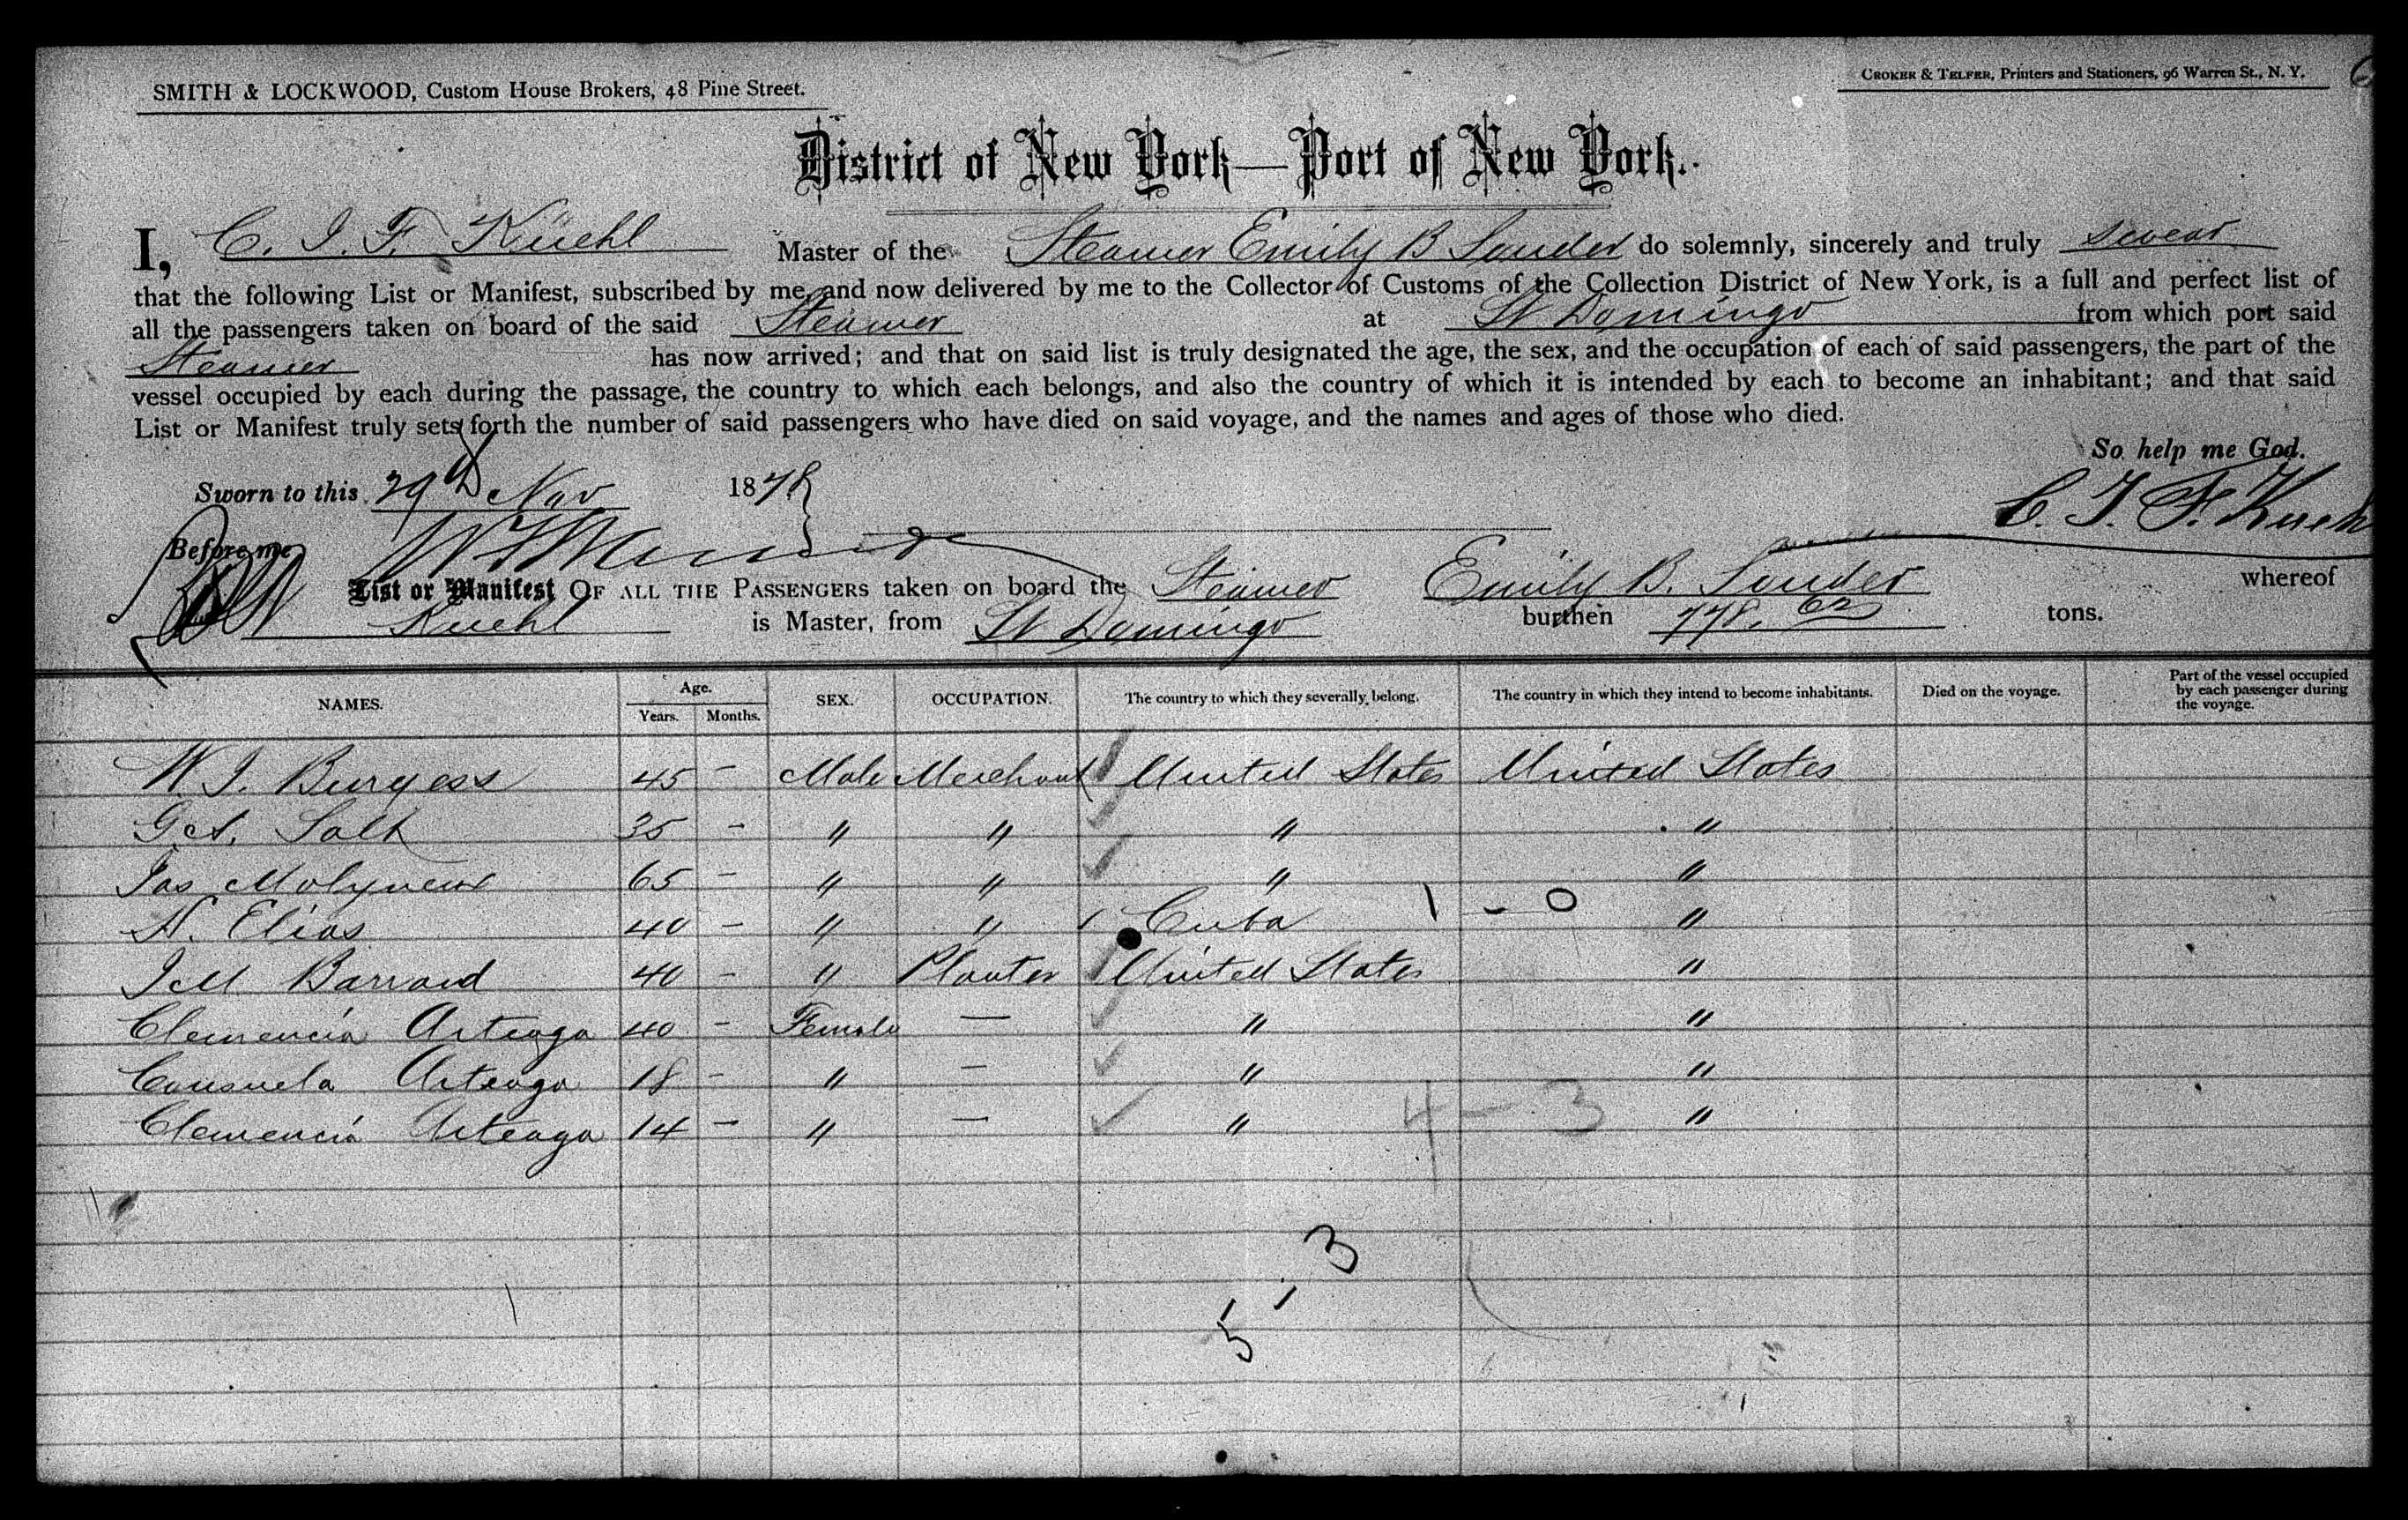 SMITH & LOCKWOOD, Custom House Brokers, 48 Pine Street.
CROKER & TELFER, Printers and Stationers, 96 Warren St., N. Y.
District of New York—Port of New York.
I, C. J. F. Küehl Master of the Steamer Emily B Souder do solemnly, sincerely and truly swear
that the following List or Manifest, subscribed by me, and now delivered by me to the Collector of Customs of the Collection District of New York, is a full and perfect list of
all the passengers taken on board of the said Steamer at St Domingo from which port said
Steamer has now arrived; and that on said list is truly designated the age, the sex, and the occupation of each of said passengers, the part of the
vessel occupied by each during the passage, the country to which each belongs, and also the country of which it is intended by each to become an inhabitant; and that said
List or Manifest truly sets forth the number of said passengers who have died on said voyage, and the names and ages of those who died.
So help me God.
Sworn to this 29th Nov 1878
C. J. F. Kueh
Before me
List or Manifest OF ALL THE PASSENGERS taken on board the Steamer Emily B. Souder whereof
Kuehl is Master, from St Domingo burthen 778.62 tons.
NAMES. Age. Years. Months. SEX. OCCUPATION. The country to which they severally belong. The country in which they intend to become inhabitants. Died on the voyage. Part of the vessel occupied by each passenger during the voyage.
W. J. Burgess 45 - Male Merchant United States United States
Salk 35 - " " " "
Jas Molyneux 65 - " " " "
N. Elias 40 - " " Cuba 1 - 0 "
Barraid 40 - " Planter United States "
Clemencia Arteaga 40 - Female — " "
Consuela Arteaga 18 - " — " "
Clemencia Arteaga 14 - " — " 4 - 3 "
5 - 3